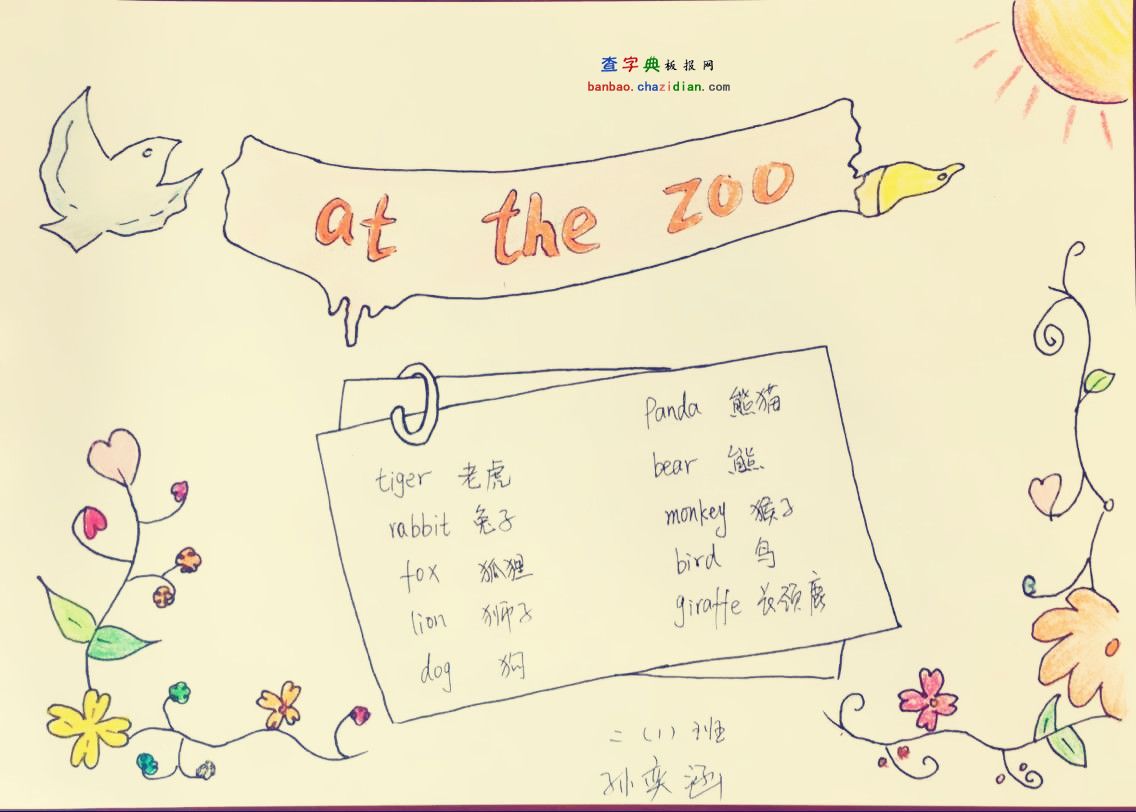 查字典板报网
banbao.chazidian.com
at the zoo
tiger 老虎
rabbit 兔子
fox 狐狸
lion 狮子
dog 狗
Panda 熊猫
bear 熊
monkey 猴子
bird 鸟
giraffe 长颈鹿
二（1）班
孙奕涵